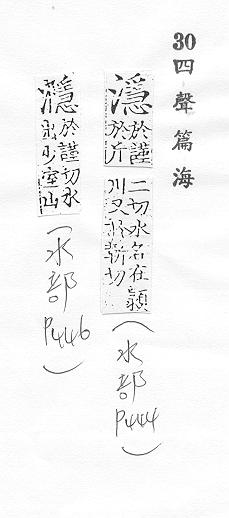 30四聲篇海
濦
於謹
於斤
二切水名在潁
川又於靳切
(水部P444)
㶏
於謹切水
出少室山
(水部P446)